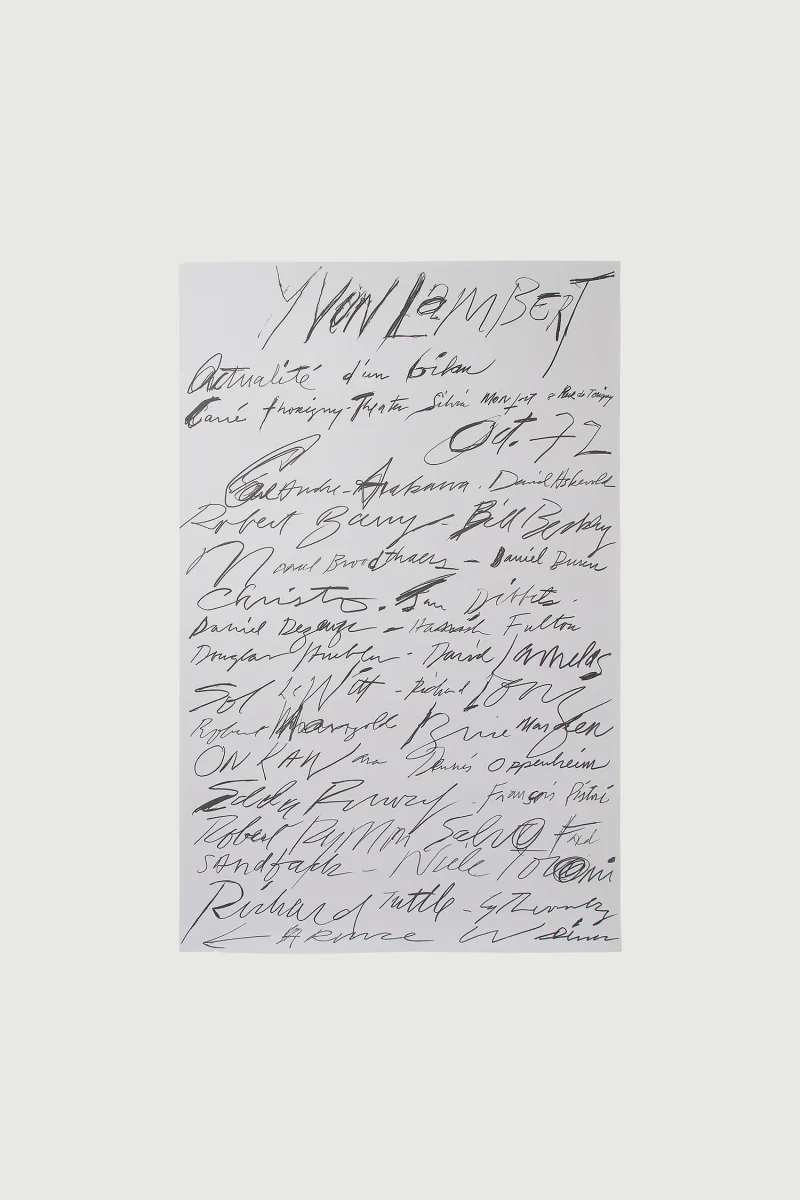 YVON LaMBERT
Actualité d'un bilan
Carré thorigny-Theater Silvia Monfort 8 Rue de Torigny
Oct. 72
Carl Andre - Arakawa . David Askevold
Robert Barry - Bill Beckley
Marcel Broodthaers - Daniel Buren
Christo . Jan Dibbets .
Daniel Dezeuze - Hamish Fulton
Douglas Huebler - David Lamelas
Sol LeWitt - Richard Long
Robert Mangold Brice Marden
ON KAWara Dennis Oppenheim
Edda Renouf . François Ristori
Robert RyMan SalvO Fred
SANdback - Niele Toroni
Richard Tuttle - Cy Twombly
LAwrence Weiner